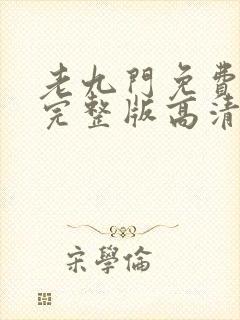 老九門免費
完整版高清
宋學倫